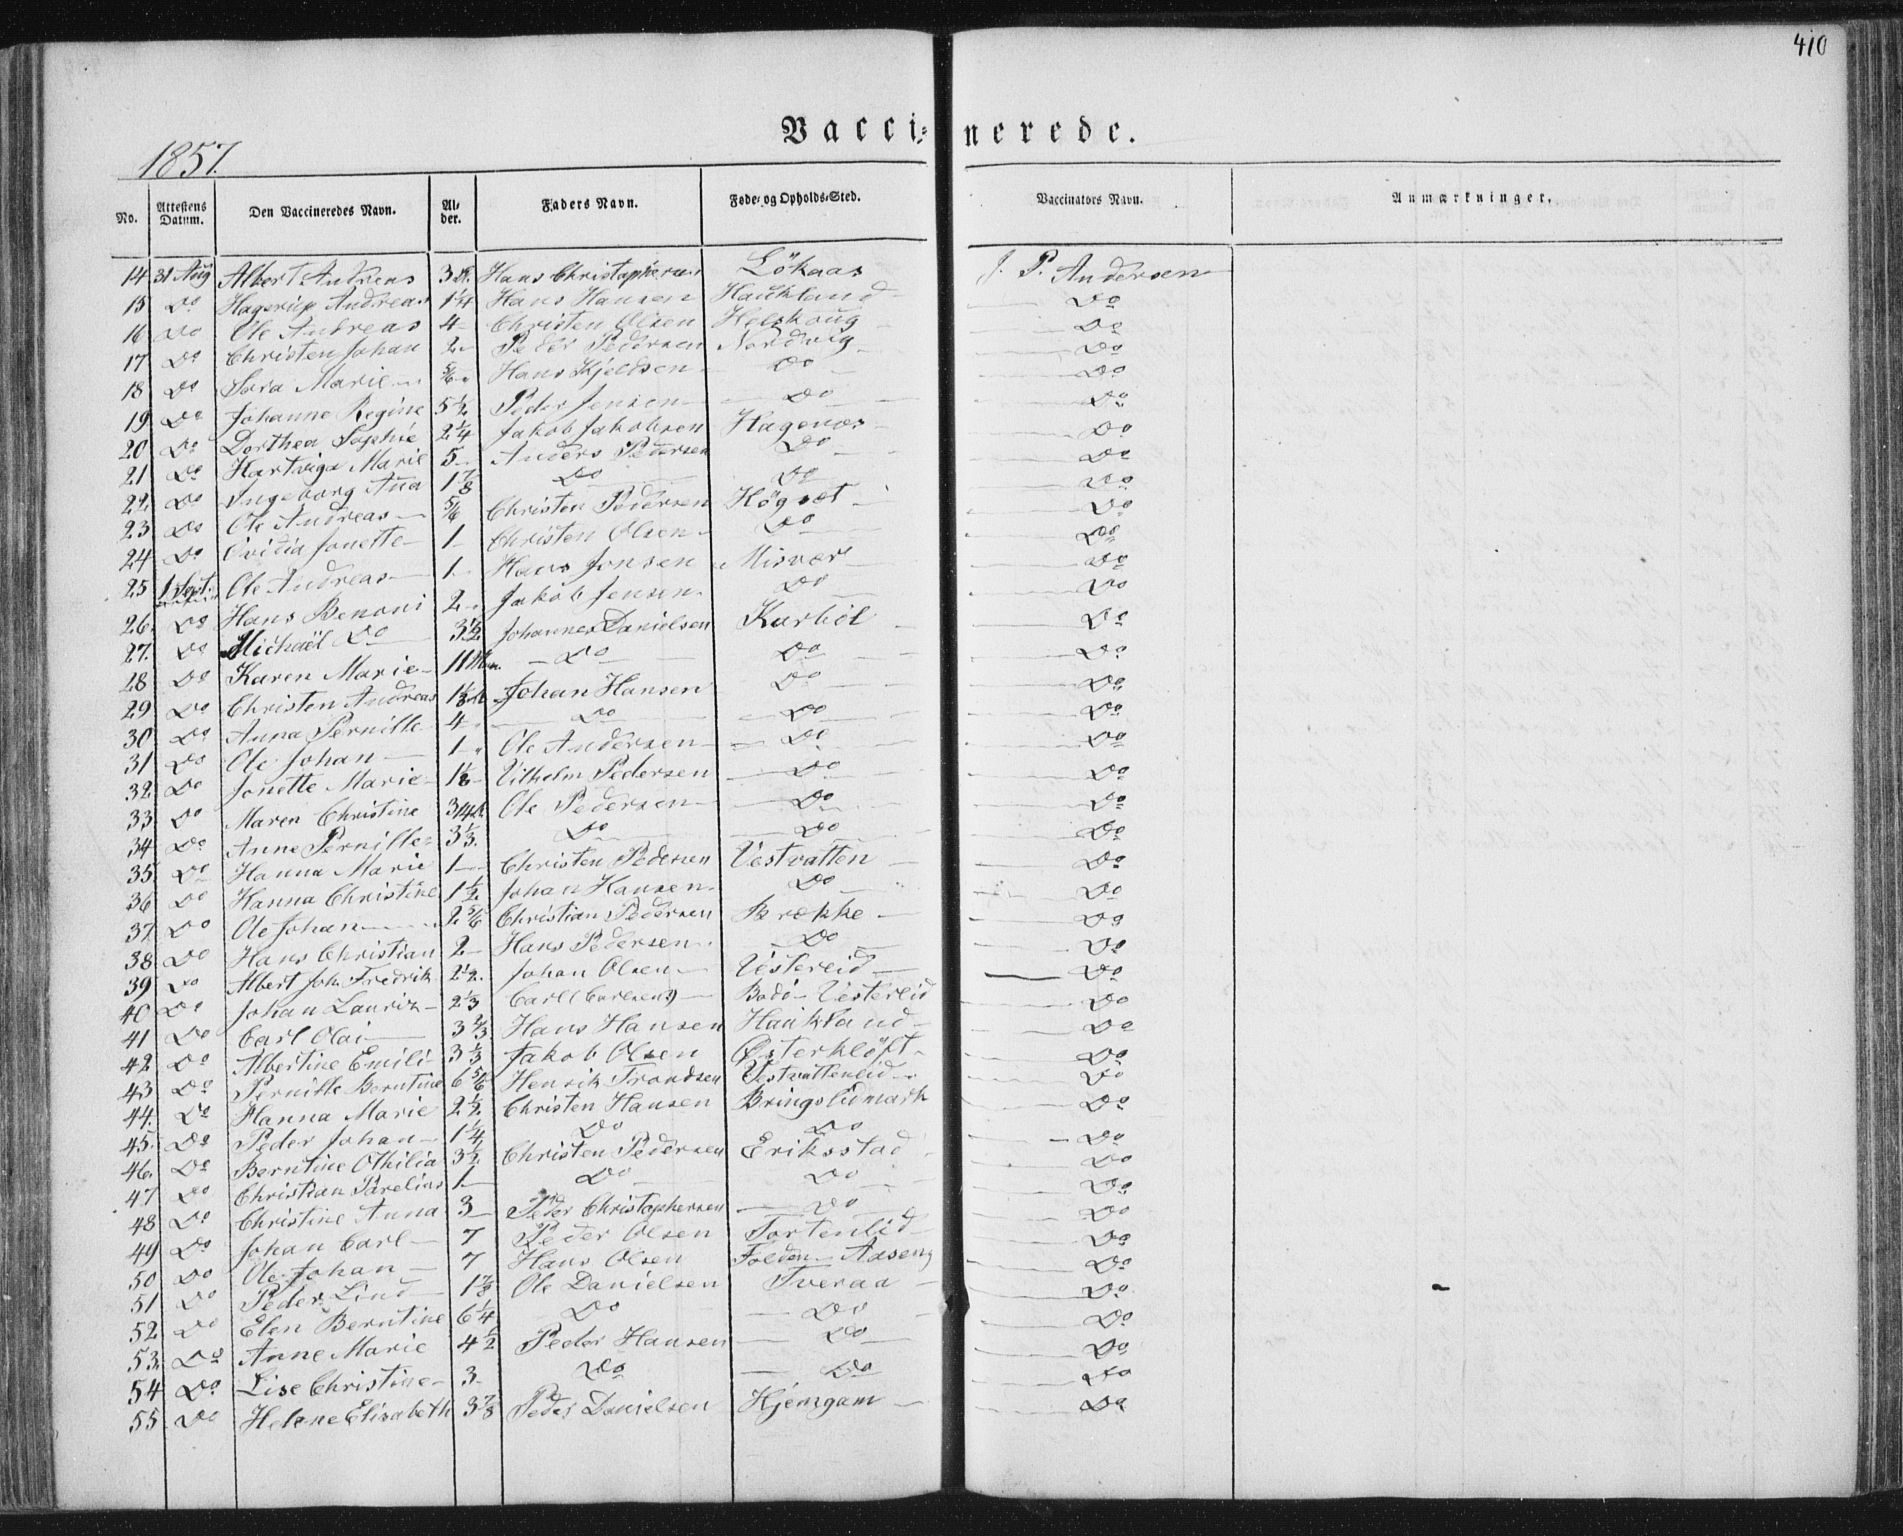 410
Vaccinerede.
1857.
No. Attestens Datum. Den Vaccineredes Navn. Alder. Faders Navn. Føde- og Opholds-Sted. Vaccinators Navn. Anmærkninger.
14 31 Aug Albert Andreas 3 Hans Christophersen Lökaas J. P. Andersen
15 Do Hagerup Andreas 1 1/4 Hans Hansen Haukland Do
16 Do Ole Andreas 4 Christen Olsen Do
17 Do Christen Johan 2 Peder Pedersen Nordvig Do
18 Do Marie 5/6 Hans Kjeldsen Do Do
19 Do Johanne Regine 5 1/2 Peder Jensen Do Do
20 Do Dorthea Sophie 2 1/4 Jakob Jakobsen Hagenæs Do
21 Do Hartviga Marie 5 Anders Pedersen Do Do
22 Do Ingeborg Ana 1 7/8 Do Do Do
23 Do Ole Andreas 5/6 Christen Pedersen Högset Do
24 Do Ovidia Jonette 1 Christen Olsen Do Do
25 1 Sept. Ole Andreas 1 Hans Jonsen Misvær Do
26. Do Hans Benoni 2 Jakob Jensen Do Do
27. Do Michaël Do 3 1/2 Johannes Danielsen Karböl Do
28 Do Karen Marie 11 Mn. Do Do Do
29 Do Christen Andreas Johan Hansen Do Do
30 Do Anna Pernille 4 Do Do Do
31 Do Ole Johan 1 Ole Andersen Do Do
32 Do Jonette Marie Vilhelm Pedersen Do Do
33 Do Maren Christine Ole Pedersen Do Do
34 Do Anne Pernille 3 1/3. Do Do Do
35 Do Hanna Marie 1 Christen Pedersen Vestvatten Do
36 Do Hanna Christine 1 1/2 Johan Hansen Do Do
37 Do Ole Johan 2 5/6 Christian Pedersen Brække Do
38 Do Hans Christian 2 Hans Pedersen Do Do
39 Do Albert Joh. Fredrik 2 1/2. Johan Olsen Vestereid Do
40 Do Johan Lauriz 2 1/3 Carl (Carlsens) Bodö Vestereid Do
41 Do Carl Olai 3 2/3 Hans Hansen Haukland Do
42 Do Albertine Emili 3 1/3 Jakob Olsen Østerklöft Do
43 Do Pernille Berntine 6 5/6 Henrik Trondsen Vestvatteneid Do
44. Do Hanna Marie 2 1/2. Christen Hansen Bringslidmark Do
45. Do Peder Johan 1 1/4 Do Do Do
46. Do Berntine Othilia 3 1/2 Christen Pedersen Eriksstad Do
47 Do Christian Parelius 1 Do Do Do
48 Do Christine Anna 3 Peder Christophersen Do Do
49 Do Johan Carl 7 Peder Olsen Tortenlid Do
50 Do Ole Johan 7 Hans Olsen Folden Aaseng Do
51 Do Peder Lind Ole Danielsen Tveraa Do
52 Do Elen Berntine 6 1/4 Do Do Do
53. Do Anne Marie 4 1/2 Peder Hansen Do Do
54 Do Lise Christine 3 Do Do Do
55 Do Helene Elisabeth 3 7/8 Peder Danielsen Hjemgam Do